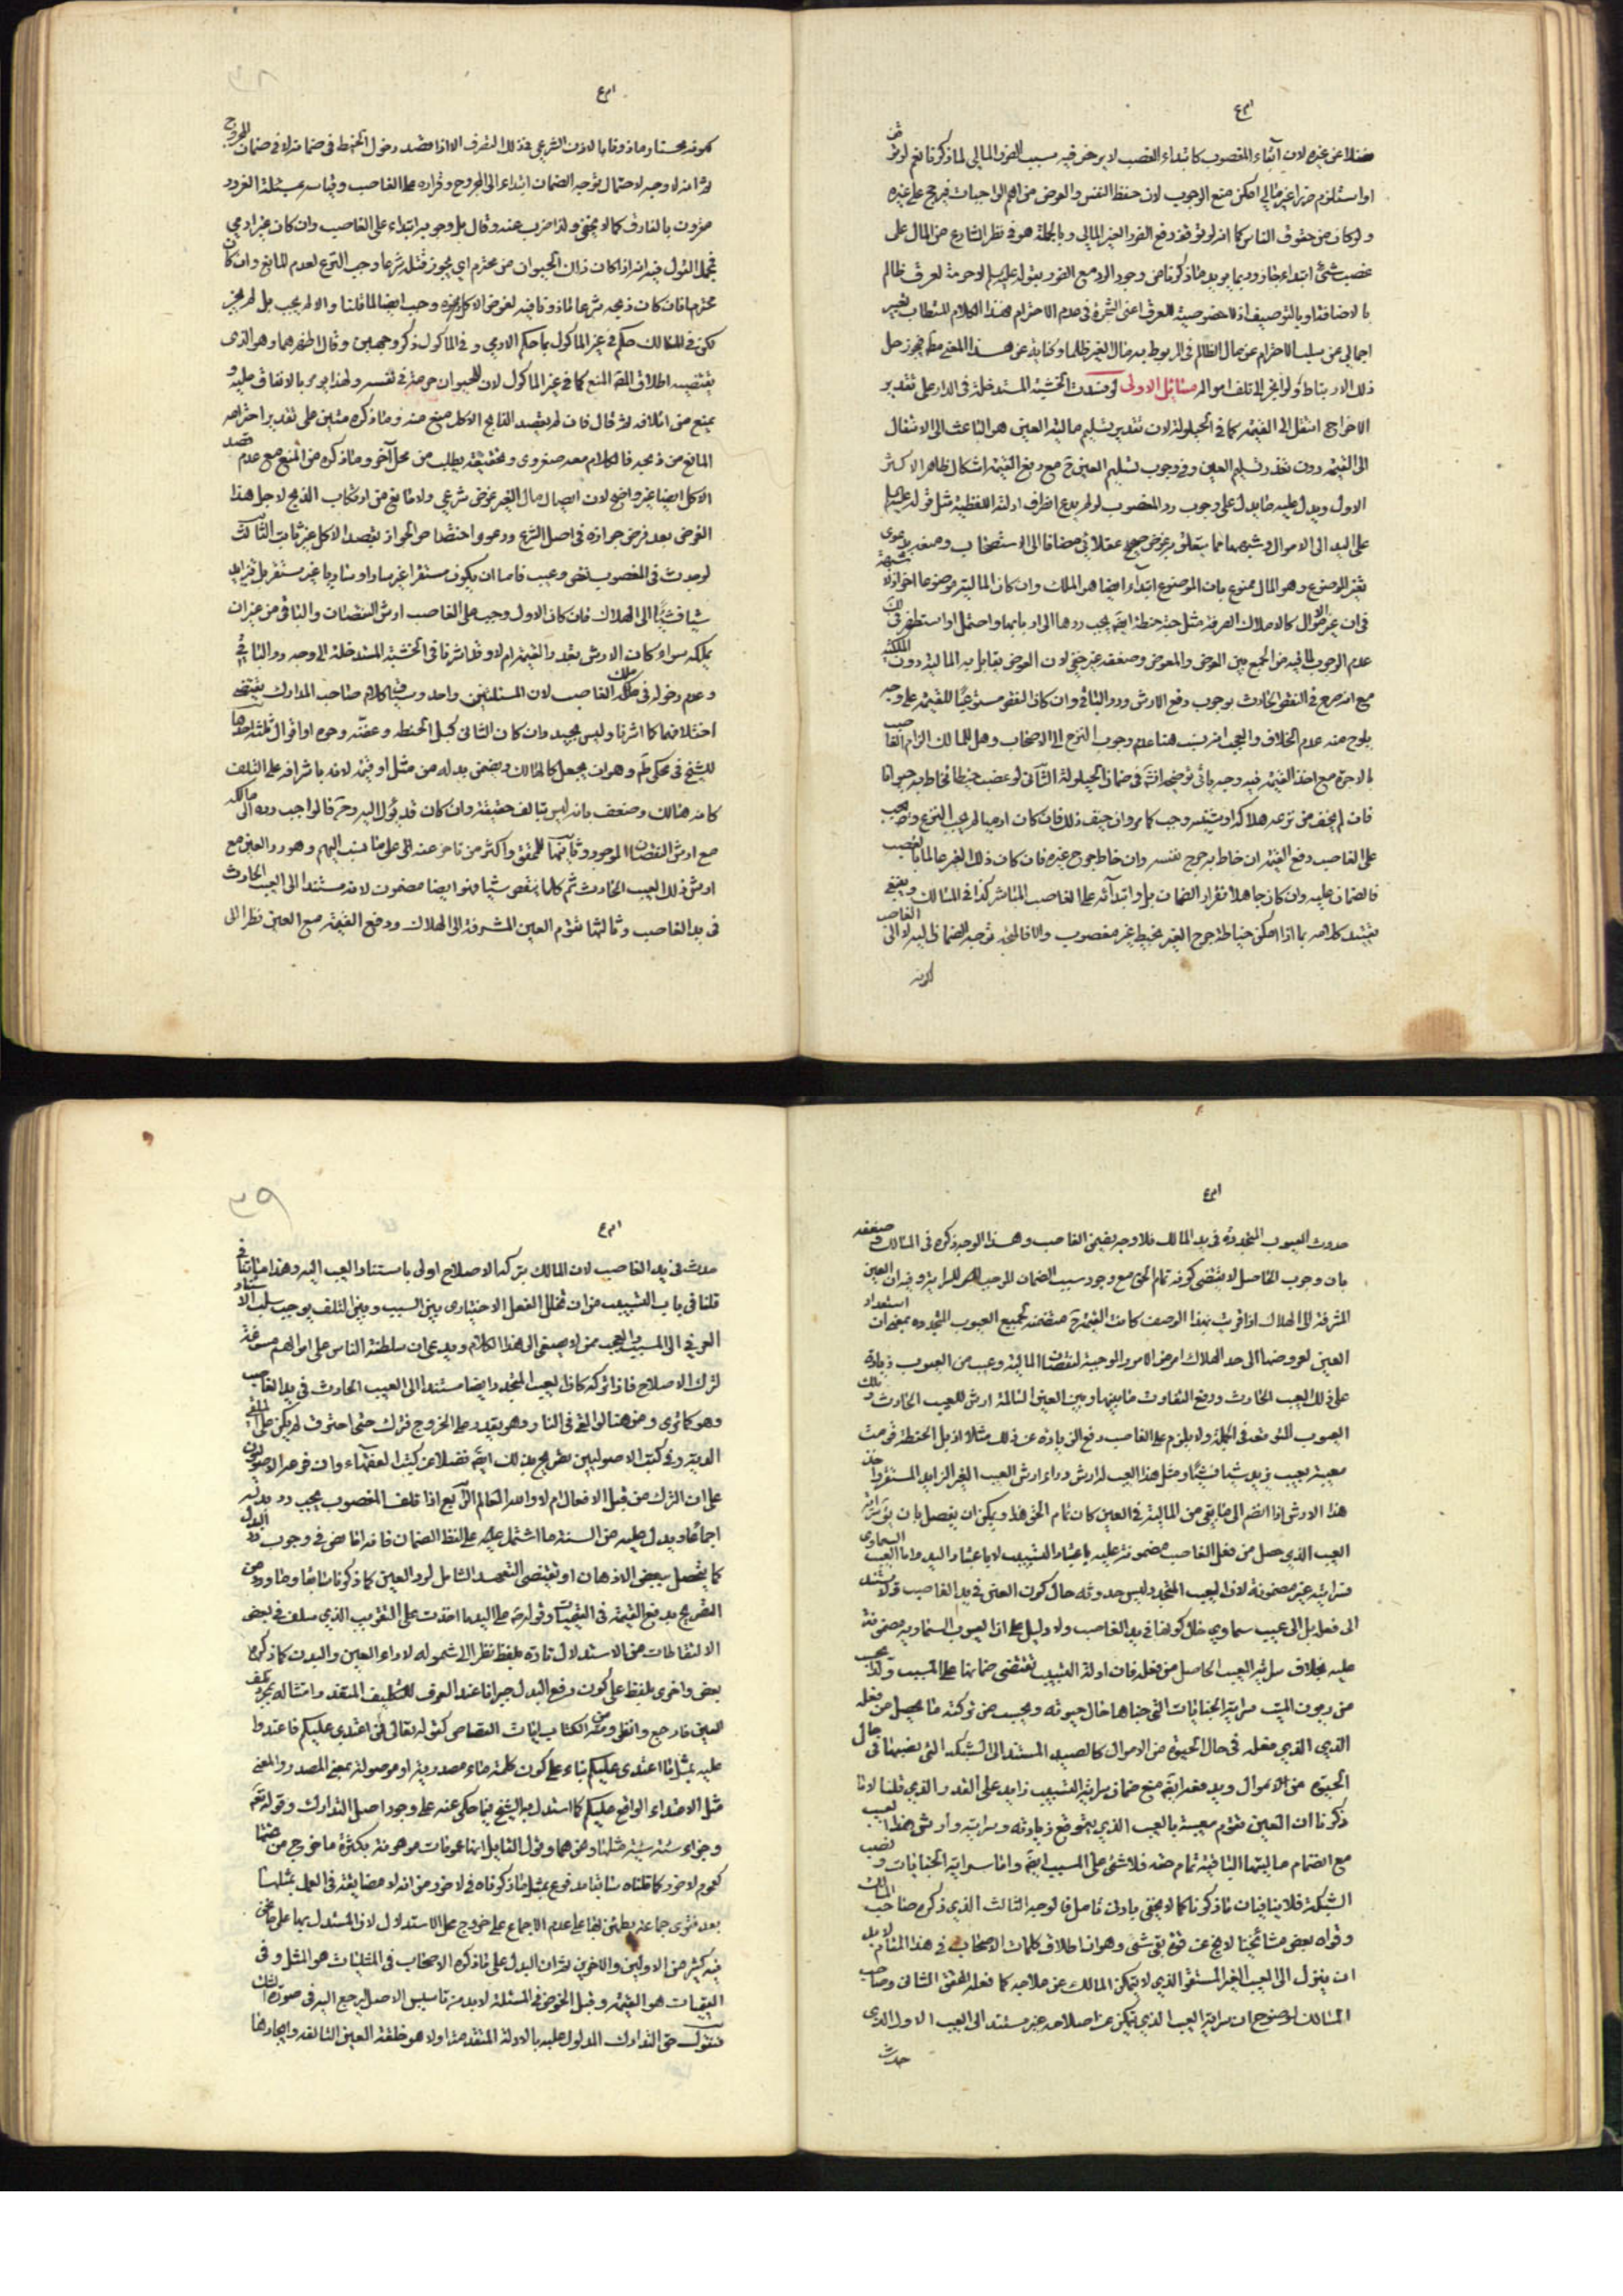 ام ع
فضلا عن غيره لان ابقاء المغصوب كابتداء الغصب لا يرخص فيه بسبب الضرر المالي لما ذكرنا نعم لو
او استلزم ضررا غير مالي امكن منع الوجوب لان حفظ النفس والعرض من اهم الواجبات فيرجح على غيره
ولو كان من حقوق الناس كما انه لو توقف دفع الضرر الغير المالي وبالجملة هو في نظر الشارع من المال على
غصب شئ ابتداء جاز وربما يويد ما ذكرنا من وجود الرد مع الضرر بقوله لا حرمة لعرق ظالم
بالاضافة او بالتوصيف اذ لا خصوصية للعرق اعني الشجرة في عدم الاحترام فهذا الكلام
اجمالي عن سلب الاحترام عن مال الظالم في المربوط به مال الغير ظلما وكناية عن هذا المعنى فيجوز حل
ذلك الارتباط ولو انجر الى تلف امواله مسائل الاولى لو فسدت الخشبة المستدخلة في الدار على تقدير
الاخراج انتقل الى القيمة كما في الحيلولة لان تقدير تسليم مالية العين هو الباعث الى الانتقال
الى القيمة دون تعذر تسليم العين وفي وجوب تسليم العين ح مع دفع القيمة اشكال ظاهر الاكثر
الاول ويدل عليه ما يدل على وجوب رد المغصوب لو لم يدع انصراف ادلته اللفظية مثل قوله
على اليد الى الاموال وشبهها مما يتعلق به غرض صحيح عقلائي مضافا الى الاستصحاب وضعفه بدعوى
تغير الموضوع وهو المال ممنوع بان الموضوع ابتداء ايضا هو الملك وان كان المالية موضوعا اخر
في ان غير الاموال كالاملاك الصرفة مثل حبة حنطة ايضا يجب ردها الى اربابها واحتمل او استظهر في
عدم الوجوب لما فيه من الجمع بين العوض والمعوض وضعفه غير خفي لان العوض يقابل به المالية دون الملكية
مع انه صرح في النقص الحادث بوجوب دفع الارش ورد الباقي وان كان النقص مستوعبا للقيمة على وجه
يلوح منه عدم الخلاف والعجب انه نسب هنا عدم وجوب النزع الى الاصحاب وهل للمالك الزام الغاصب
بالاجرة مع اخذ القيمة فيه وجه ياتي توضيحه انش في ضمان الحيلولة الثاني لو غصب خيطا فخاط به حيوانا
فان لم يخف من نزعه هلاكه او شينه وجب كما مر وان خيف ذلك فان كان ادميا لم يجب النزع ويجب
على الغاصب دفع القيمة ان خاط به جرح نفسه وان خاط جرح غيره فان كان ذلك الغير عالما بالغصب
فالضمان عليه وان كان جاهلا فقرار الضمان بل وابتدائه على الغاصب المباشر كذا في المسالك وينبغي
تقييد كلامه بما اذا امكن خياطة جرح الغير بخيط غير مغصوب والا فالمتجه توجه الضمان اليه لا الى الغاصب
لكونه
ام ع
لكونه محسنا وماذونا بالاذن الشرعي في ذلك التصرف الا اذا قصد دخول الخيط في ضمانه لا في ضمان المجروح
ثم انه لا وجه لاحتمال توجه الضمان ابتداء الى المجروح وقراره على الغاصب وقياسه بمسئلة الغرور
مقرون بالفارق كما لا يخفى ولذا ضرب عنه وقال بل وجوبه ابتداء على الغاصب وان كان غير ادمي
فمجمل القول فيه انه اذا كان ذلك الحيوان غير محترم اي يجوز قتله شرعا وجب النزع لعدم المانع وان كان
محترما فان كان ذبحه شرعا ماذونا فيه لغرض الاكل وغيره وجب ايضا لما قلنا والا لم يجب بل لم يجز
لكن في المسالك حكم في غير الماكول بما حكم الادمي وفي الماكول ذكر وجهين وقال اظهرهما وهو الذي
يقتضيه اطلاق المص المنع كما في غير الماكول لان للحيوان حرمة في نفسه ولهذا يومر بالانفاق عليه و
يمنع من اتلافه ثم قال فان لم يقصد الذابح الاكل منع منه وما ذكره متين على تقدير احترامه
المانع من ذبحه فالكلام معه صغروي وتحقيقه يطلب من محل آخر وما ذكره من المنع مع عدم قصد
الاكل ايضا غير واضح لان ايصال مال الغير غرض شرعي ولا مانع من ارتكاب الذبح لاجل هذا
الغرض بعد فرض جوازه في اصل الشرع ودعوى اختصاص الجواز بقصد الاكل غير ثابت الثالث
لو حدث في المغصوب نقص وعيب فاما ان يكون مستقرا غير سار او ساريا غير مستقر بل متزايد
شيئا فشيئا الى الهلاك فان كان الاول وجب على الغاصب ارش النقصان والباقي من غير ان
يملكه سواء كان الارش بقدر القيمة ام لا وقد اشرنا في الخشبة المستدخلة الى وجه رد الباقي
وعدم دخوله في ملك الغاصب لان المسئلتين واحد وربما كلام صاحب المدارك يقتضي
اختلافهما كما اشرنا وليس بجيد وان كان الثاني كبل الحنطة وعفنه وجوه او اقوال ثلثة احدها
للشيخ في محكي ط وهو ان يجعل كالهالك ويضمن بدله من مثل او قيمة لانه باشرافه على التلف
كانه هنالك وضعف بانه ليس بتالف حقيقة وان كان قد يؤل اليه وح قالوا اجب رده الى مالكه
مع ارش النقصان الموجود وثانيها للمحقق واكثر من تاخر عنه على ما نسب اليهم وهو رد العين مع
ارش ذلك العيب الحادث ثم كلما ينقص شيئا فهو ايضا مضمون لانه مستندا الى العيب الحادث
في يد الغاصب وثالثها تقوم العين المشرفة الى الهلاك ودفع القيمة مع العين نظرا الى
ام ع
حدوث العيوب المتجددة في يد المالك فلا وجه بضمن الغاصب وهذا الوجه ذكره في المسالك وضعفه
بان وجوب الحاصل لا يقتضي كونه تمام الحق مع وجود سبب الضمان الموجب للسراية وفيه ان العين
المشرفة الى الهلاك اذا قومت بهذا الوصف كانت القيمة ح متضمنة لجميع العيوب المتجددة بمعنى ان استعداد
العين لعروضها الى حد الهلاك امر من الامور الموجبة لنقصان المالية وعيب من العيوب زيادة
على ذلك العيب الحادث ودفع التفاوت ما بينها وبين العين السالمة ارش للعيب الحادث و تلك
العيوب المتوقعة في الجملة ولا يلزم على الغاصب دفع الزيادة عن ذلك مثلا اذا بل الحنطة فرضت
معيبة بعيب يزيد شيئا فشيئا ومثل هذا العيب له ارش وراء ارش العيب الغير الزايد المستقر
هذا الارش اذا انضم الى ما بقي من المالية في العين كان تمام الحق هذا ويمكن ان يفصل بان سراية
العيب الذي حصل من فعل الغاصب مضمونة عليه باعتبار التسبيب لا باعتبار اليد واما العيب السماوي
فسرايته غير مضمونة لان العيب المتجدد ليس حدوثه حال كون العين في يد الغاصب ولا يستند
الى فعله بل الى عيب سماوي حال كونها في يد الغاصب ولا دليل على ان العيوب السماوية مضمونة
عليه بخلاف سراية العيب الحاصل من فعله فان ادلة التسبيب تقتضي ضمانها على المسبب ولذا يجب
من ديون الميت سراية الجنايات التي جناها حال حيوته ويجب من تركته ما يحصل من فعله
الذي الذي فعله في حال الحيوة من الاموال كالصيد المستند الى الشبكة التي نصبها في حال
الحيوة من الاموال ويد فعه ايض منع ضمان سراية التسبيب زايد على القدر الذي قلنا لانا
ذكرنا ان العين تقوم معيبة بالعيب الذي يتوقع زيادته وسرايته وارش هذا العيب
مع انضمام ماليتها الباقية تمام حقه فلا شئ على المسبب ايض واما سراية الجنايات ونصب
الشبكة فلا ينافيان ما ذكرنا كما لا يخفى بادنى تامل فالوجه الثالث الذي ذكره صاحب المسالك
وقواه بعض مشائخنا لا يخ عن قوة بقي شئ وهو ان اطلاق كلمات الاصحاب في هذا المقام لا بد
ان ينزل الى العيب الغير المستقر الذي لا يتمكن المالك عن علاجه كما فعله المحقق الثاني وصاحب
المسالك لوضوح ان سراية العيب الذي يتمكن عن اصلاحه غير مستند الى العيب الاول الذي
حدث
٣٩
ام ع
حدث في يد الغاصب لان المالك بتركه الاصلاح اولى باستناد العيب اليه وهذا مناف
قلنا في باب التسبيب من ان تخلل الفعل الاختياري بين السبب وبين التلف يوجب سلب الاستناد
العرفي الى المسبب والعجب ممن لا يصغى الى هذا الكلام ويدعى ان سلطنة الناس على اموالهم مسوغة
لترك الاصلاح فاذا تركه كان العيب المتجدد ايضا مستندا الى العيب الحادث في يد الغاصب
وهو كما ترى ومن هنا لو القى في النار وهو يقدر على الخروج فترك حتى احترق لم يكن على الملقي
الدية وفي كتب الاصوليين تصريح بذلك ايض فضلا عن كتب الفقهاء وان فرعه الاصوليون
على ان الترك من قبيل الافعال ام لا والله العالم الرابع اذا تلف المغصوب يجب رد بدله
اجماعا ويدل عليه من السنة ما اشتمل عليه على لفظ الضمان فانه اما نص في وجوب رد البدل
كما يتحصل ببعض الاذهان او يقتضي التعهد الشامل لرد العين كما ذكرنا سابقا وما ورد من
التصريح بدفع القيمة في القيميات وقوله ص على اليد ما اخذت على التقريب الذي سلف في بعض
الالتقاطات من الاستدلال تارة بلفظ نظرا الى شموله لاداء العين والبدن كما ذكره
بعض واخرى بلفظ على كون دفع البدل جبرانا عند العرف للتكليف المتعذر وامتثاله بمجرد تلف
العين فارجع وانقل ومن الكتاب ايات القصاص كقوله تعالى فمن اعتدى عليكم فاعتدوا
عليه بمثل ما اعتدى عليكم بناء على كون كلمة ما مصدرية او موصولة بمعنى المصدر والمعنى
مثل الاعتداء الواقع عليكم كما استدل به الشيخ فيما حكي عنه على وجود اصل التدارك وقوله تع
وجزاء سيئة سيئة مثلها ونحوهما وقول القايل انها عمومات موهونة بكثرة ما خرج من تحتها
كعموم لا ضرر كما قلناه سابقا مدفوع بمثل ما ذكرناه في لا ضرر من انه لا مضايقة في العمل بمثلها
بعد فتوى جماعة يطمئن بها على عدم الاجماع على خروج محل الاستدلال لان المستدل بها على ما نحن
فيه كثير من الاولين والاخرين ثم ان البدل على ما ذكره الاصحاب في المثليات هو المثل وفي
القيميات هو القيمة وقبل الخوض في المسئلة لا بد من تاسيس الاصل ليرجع اليه في صورة الشك
فنقول حق التدارك المدلول عليه بالادلة المتقدمة اولا هو خلقة العين التالفة وايجادها